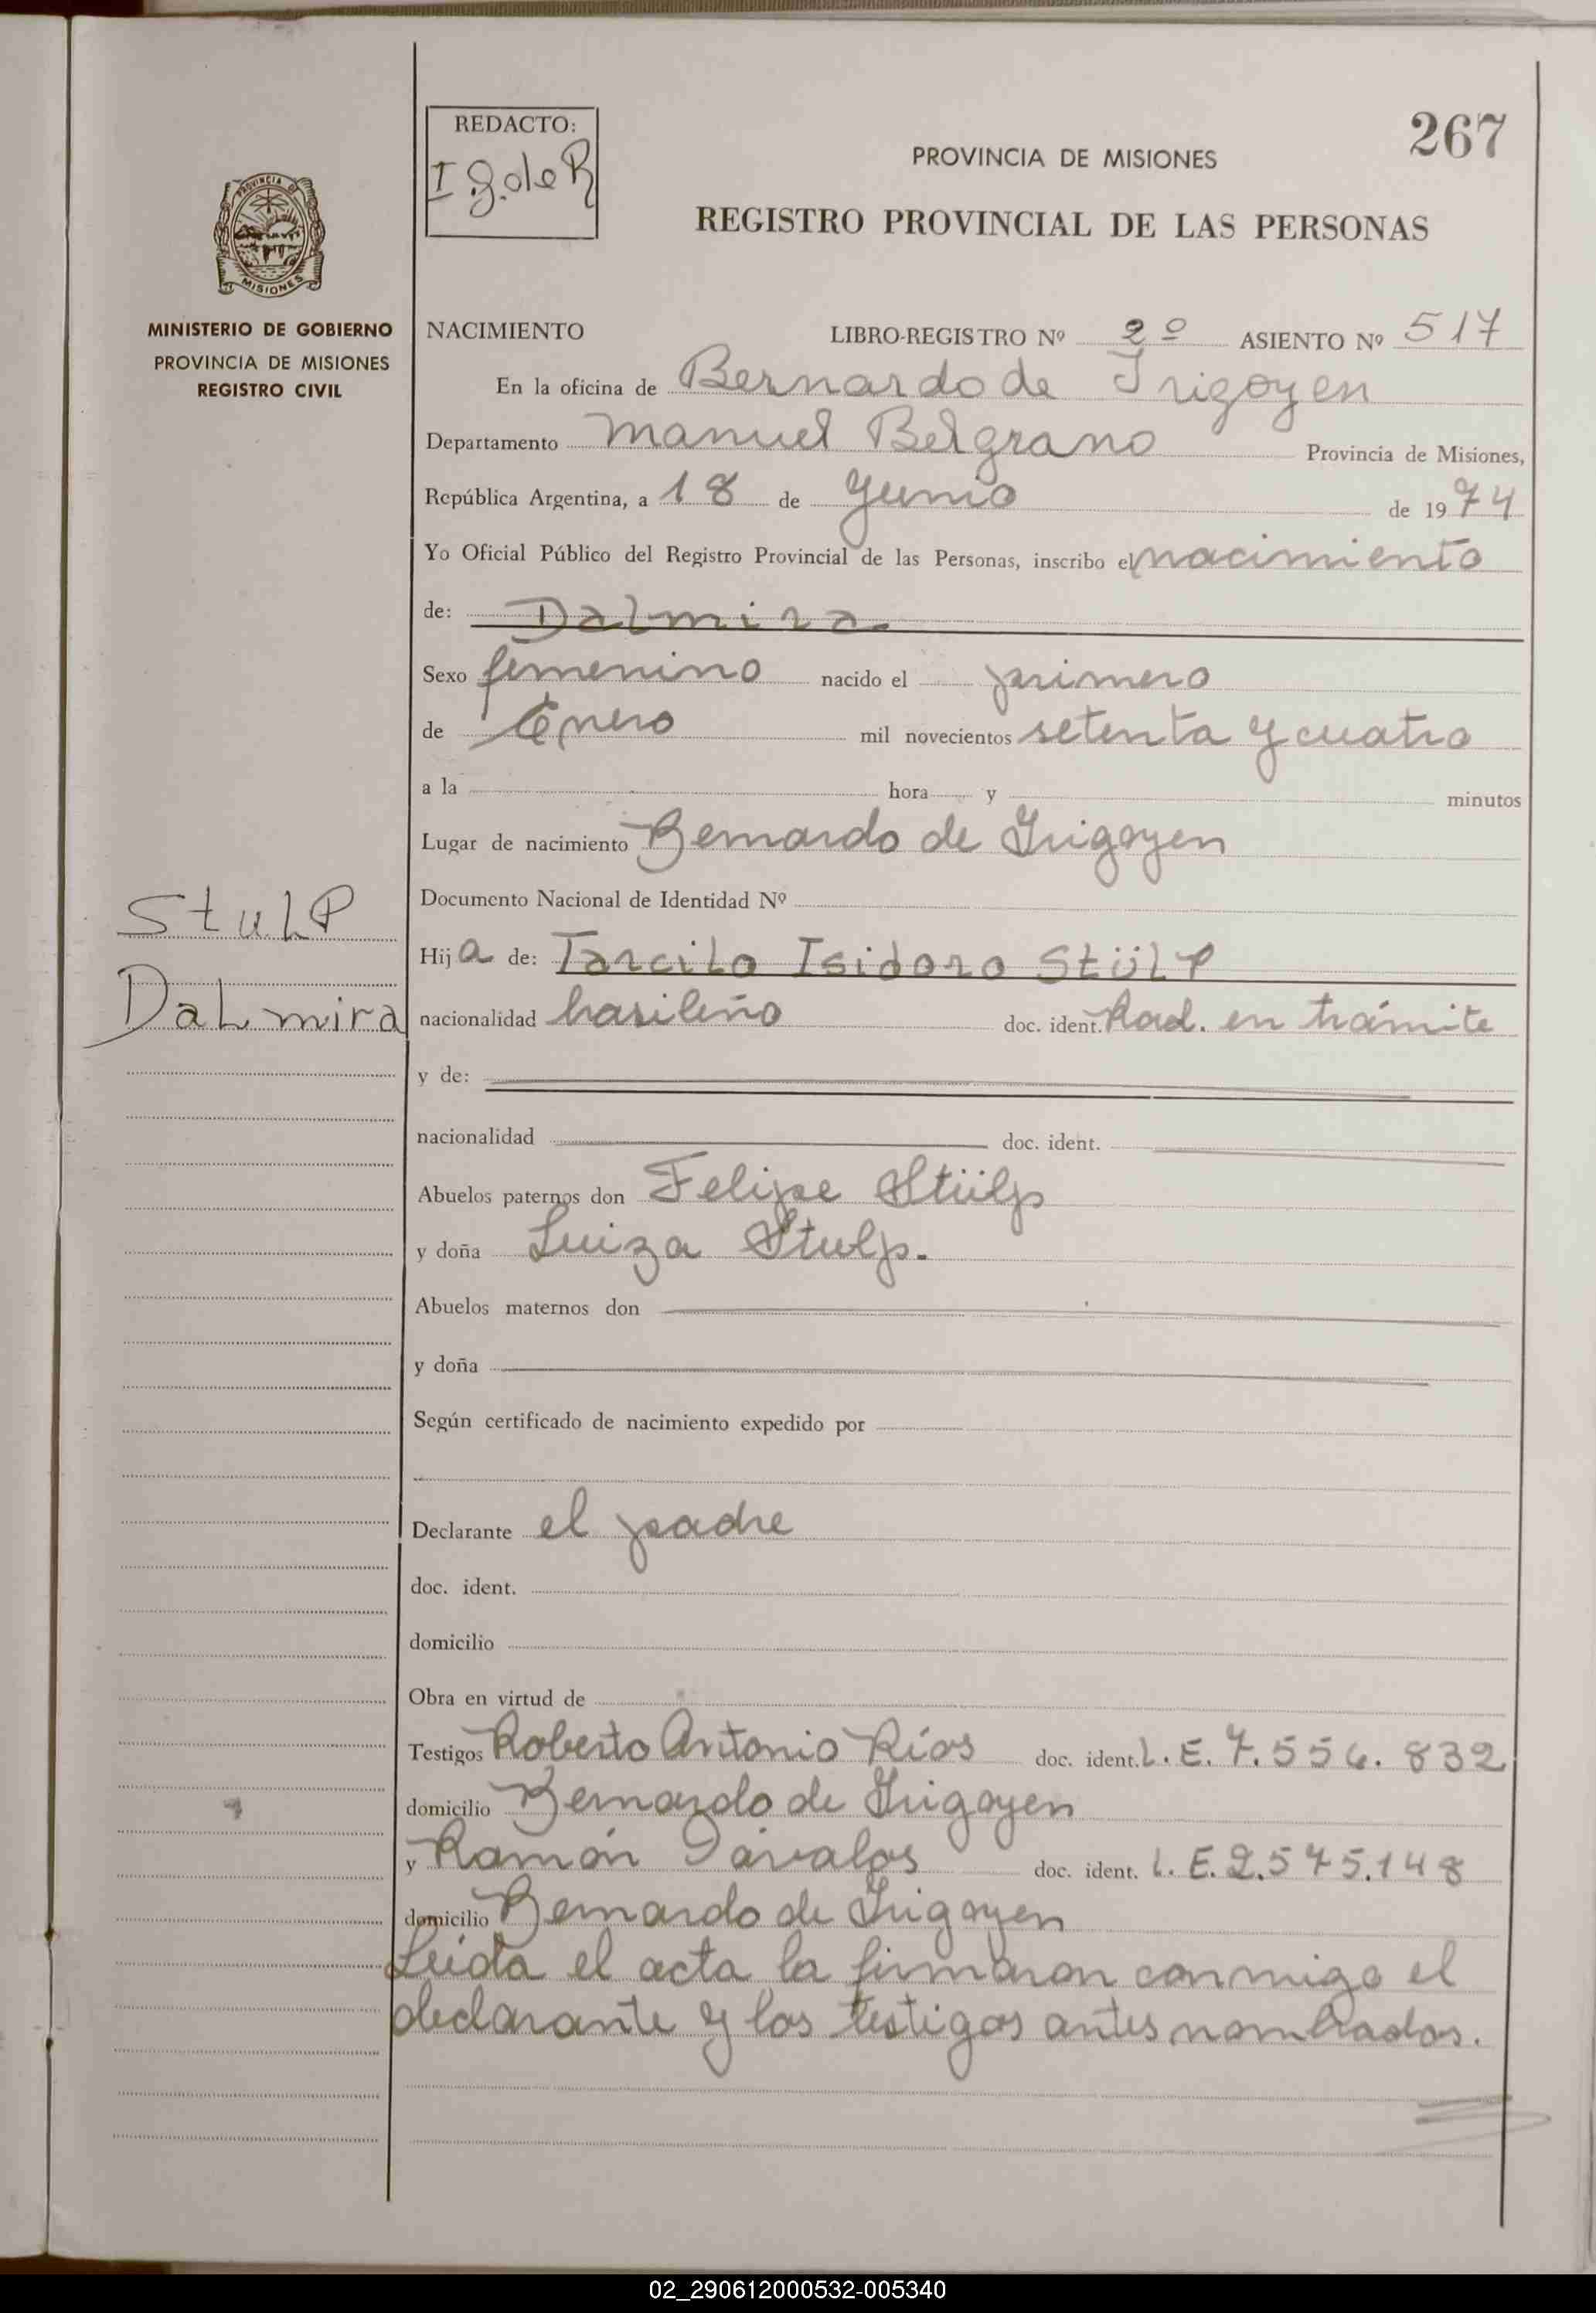 267
REDACTO:
I.G. de R
PROVINCIA DE MISIONES
REGISTRO PROVINCIAL DE LAS PERSONAS
PROVINCIA DE
MISIONES
MINISTERIO DE GOBIERNO
PROVINCIA DE MISIONES
REGISTRO CIVIL
NACIMIENTO LIBRO-REGISTRO Nº 2º ASIENTO Nº 517
En la oficina de Bernardo de Irigoyen
Departamento Manuel Belgrano Provincia de Misiones,
República Argentina, a 18 de Junio de 1974
Yo Oficial Público del Registro Provincial de las Personas, inscribo el nacimiento
de: Dalmira
Sexo femenino nacido el primero
de Enero mil novecientos setenta y cuatro
a la hora y minutos
Lugar de nacimiento Bernardo de Irigoyen
Documento Nacional de Identidad Nº
StuLP
Hija de: Tarcilo Isidoro Stülp
DaLmira
nacionalidad brasileño doc. ident. Rad. en trámite
y de:
nacionalidad doc. ident.
Abuelos paternos don Felipe Stülp
y doña Luiza Stulp.
Abuelos maternos don
y doña
Según certificado de nacimiento expedido por
Declarante el padre
doc. ident.
domicilio
Obra en virtud de
Testigos Roberto Antonio Ríos doc. ident. L.E. 7.556.832
domicilio Bernardo de Irigoyen
y Ramón Dávalos doc. ident. L.E. 2.575.148
domicilio Bernardo de Irigoyen
Leída el acta la firmaron conmigo el
declarante y los testigos antes nombrados.
02_290612000532-005340